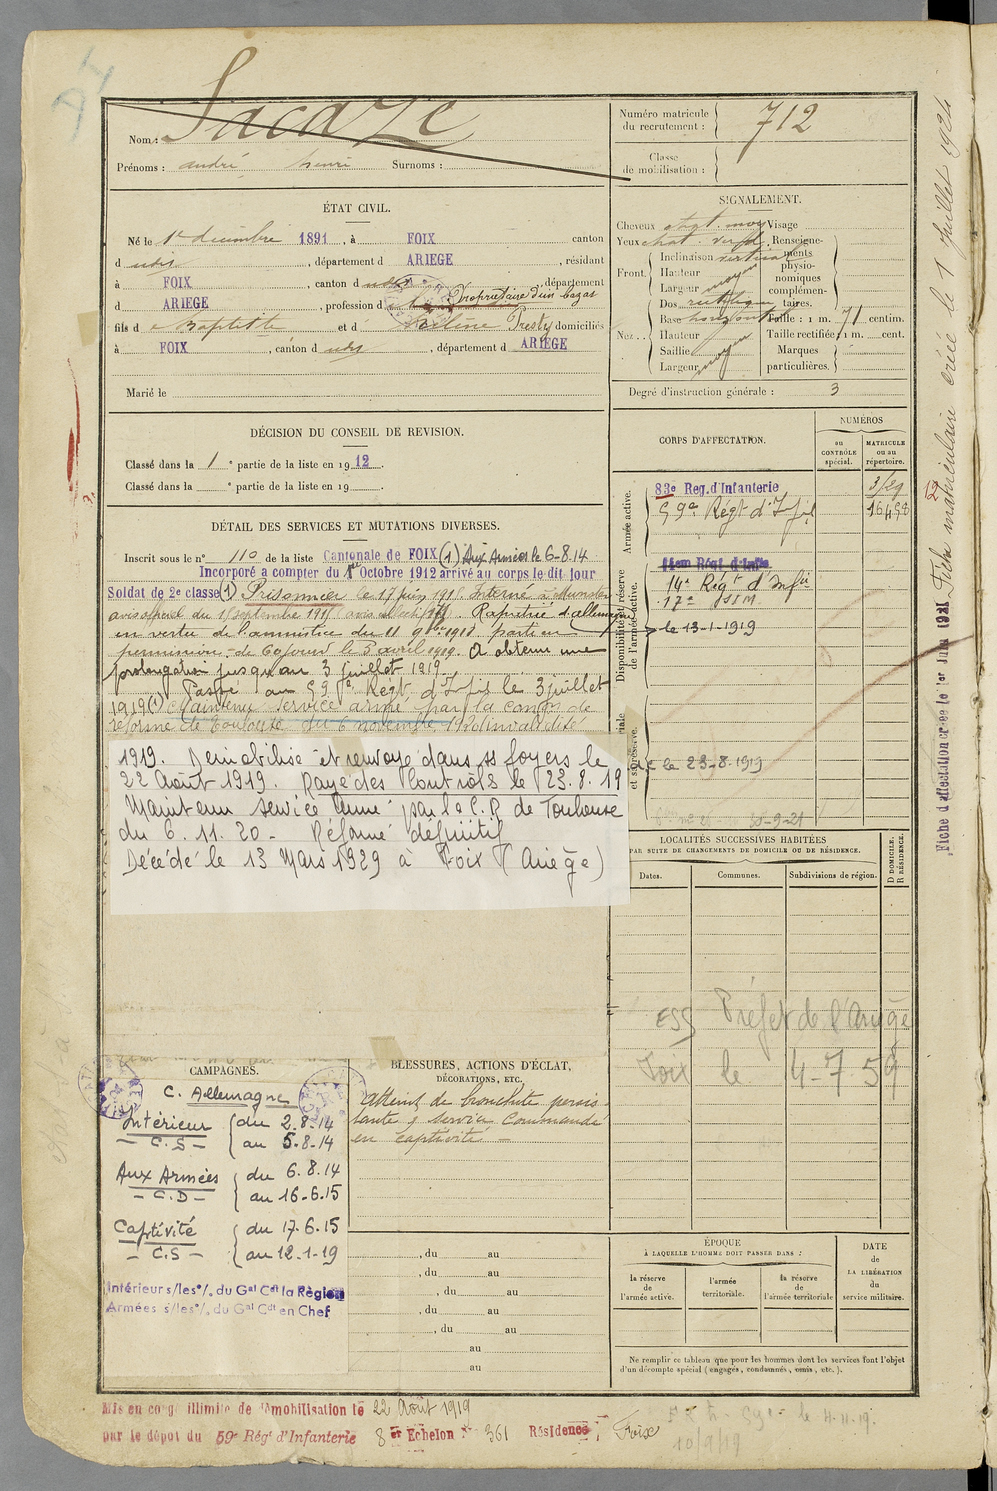 Nom : Sacaze
Prénoms : andré henri Surnoms :
ÉTAT CIVIL.
Né le 1er décembre 1891, à FOIX canton
d udis, département d ARIEGE, résidant
à FOIX, canton d udis, département
d ARIEGE, profession d Propriétaire d'un bazar
fils d e Baptiste et d Presty domiciliés
à FOIX, canton d udis, département d ARIEGE
Marié le
DÉCISION DU CONSEIL DE REVISION.
Classé dans la 1 e partie de la liste en 1912.
Classé dans la e partie de la liste en 19 .
DÉTAIL DES SERVICES ET MUTATIONS DIVERSES.
Inscrit sous le n° 110 de la liste Cantonale de FOIX (1) Aux Armées le 6-8.14
Incorporé a compter du 1er Octobre 1912 arrivé au corps le dit jour
Soldat de 2e classe (1) Prisonnier le 17 juin 1915 Interné à Munster
avis officiel du 18 septembre 1915 Rapatrié d'allemagne
en vertu de l'armistice du 11 9bre 1918 parti en
permission de 60 jours le 5 avril 1919. A obtenu une
prolongation jusqu'au 3 juillet 1919
Passé au 59e Régt d'Infie le 3 juillet
1919 (1) Maintenu service armé par la comon de
réforme de Toulouse du 6 novembre 1920 invalidité
1919. Démobilisé et renvoyé dans ss foyers le
22 Août 1919. Rayé des Contrôls le 23.8.19
Maintenu service Armé par la C.R de Toulouse
du 6.11.20 - Réformé définitif
Décédé le 13 Mars 1929 à Foix (Ariège)
CAMPAGNES.
C. Allemagne
Intérieur - C.S - { du 2.8.14 au 5.8.14
Aux Armées - C.D - { du 6.8.14 au 16-6.15
Captivité - C.S - { du 17.6.15 au 12-1-19
Intérieur s/les o/. du Gal Cdt la Région
Armées s/les o/. du Gal Cdt en Chef
BLESSURES, ACTIONS D'ÉCLAT,
DÉCORATIONS, ETC.
atteint de bronchite persis-
tante, service Commandé
en captivité -
, du au
, du au
, du au
, du au
, du au
au
au
Numéro matricule du recrutement : 712
Classe de mobilisation :
SIGNALEMENT.
Cheveux chat. moy Visage
Yeux chat verd. Renseignements physionomiques complémentaires.
Front. Inclinaison vertical
Hauteur moyen
Largeur
Nez .. Dos rectiligne
Base horizontal Taille : 1 m. 71 centim.
Hauteur Taille rectifiée : 1 m. cent.
Saillie moyen Marques
Largeur particulières.
Degré d'instruction générale : 3
CORPS D'AFFECTATION.
NUMÉROS
au CONTRÔLE spécial.
MATRICULE ou au répertoire.
Armée active.
83e Reg. d'Infanterie
59e Régt d'Infie 16458
Disponibilité et réserve de l'armée active.
14e Régt d'Infie
le 13-1-1919
DL le 23-8-1919
LOCALITÉS SUCCESSIVES HABITÉES
PAR SUITE DE CHANGEMENTS DE DOMICILE OU DE RÉSIDENCE.
Dates. Communes. Subdivisions de région.
D DOMICILE. R RÉSIDENCE.
ESS Préfet de l'Ariège
Foix le 4-7-59
ÉPOQUE
À LAQUELLE L'HOMME DOIT PASSER DANS :
la réserve de l'armée active.
l'armée territoriale.
la réserve de l'armée territoriale
DATE de LA LIBÉRATION du service militaire.
Ne remplir ce tableau que pour les hommes dont les services font l'objet
d'un décompte spécial (engagés, condamnés, omis, etc.).
Mis en congé illimité de démobilisation le 22 Août 1919
par le dépôt du 59e Régt d'Infanterie 8e Echelon N° 361 Résidence, Foix
10/9/19
Fiche matriculaire créée le 1 juillet 1924
Fiche d'affectation créée le 1er Juin 1921